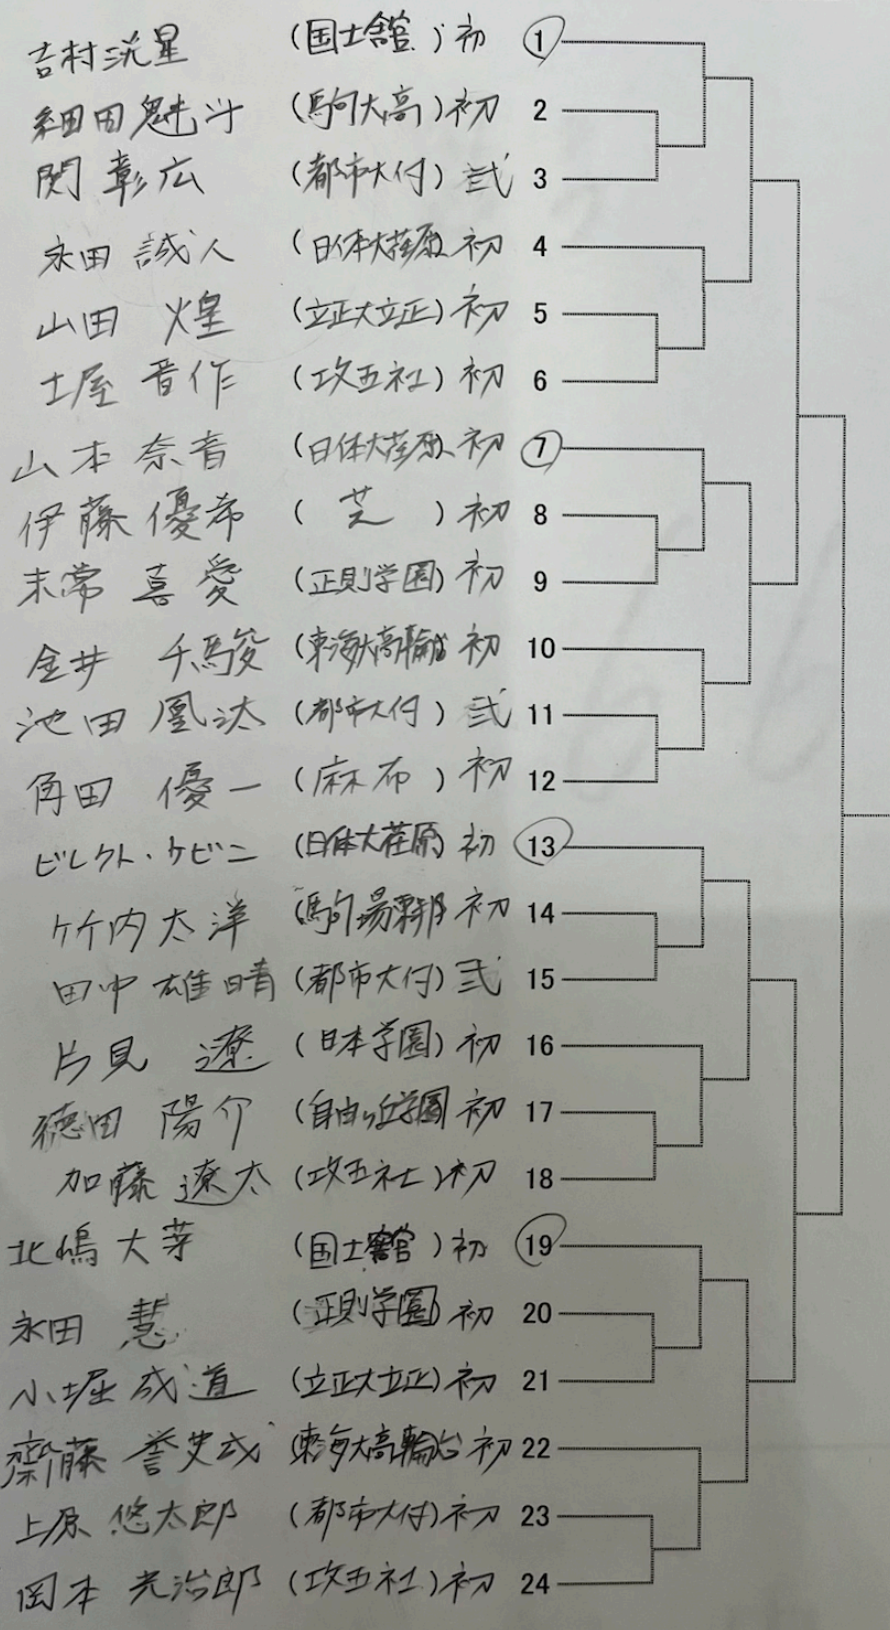 吉村洸星 (国士舘) 初 1
細田魁斗 (駒大高) 初 2
関 彰広 (都市大付) 弐 3
永田 誠人 (日体大荏原) 初 4
山田 煌 (立正大立正) 初 5
土屋 晋作 (攻玉社) 初 6
山本 奈音 (日体大荏原) 初 7
伊藤 優希 (芝) 初 8
末常 喜愛 (正則学園) 初 9
金井 千駿 (東海大高輪台) 初 10
池田 凰汰 (都市大付) 弐 11
角田 優一 (麻布) 初 12
ビレクト・ケビン (日体大荏原) 初 13
竹内太洋 (駒場東邦) 初 14
田中雄晴 (都市大付) 弐 15
片見 遼 (日本学園) 初 16
徳田 陽介 (自由ヶ丘学園) 初 17
加藤 遼太 (攻玉社) 初 18
北嶋大芽 (国士舘) 初 19
永田 慧 (正則学園) 初 20
小堀成道 (立正大立正) 初 21
齋藤 誉 (東海大高輪台) 初 22
上原 悠太郎 (都市大付) 初 23
岡本 光治郎 (攻玉社) 初 24